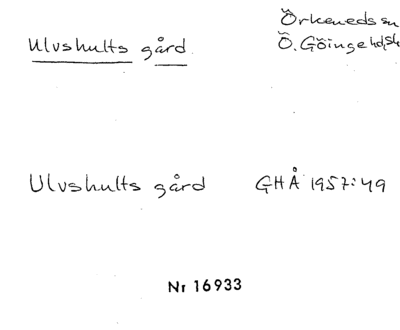 Örkeneds sn
Ulvshults gård
Ö. Göinge hd, Sk
Ulvshults gård GHÅ 1957:49
Nr 16933